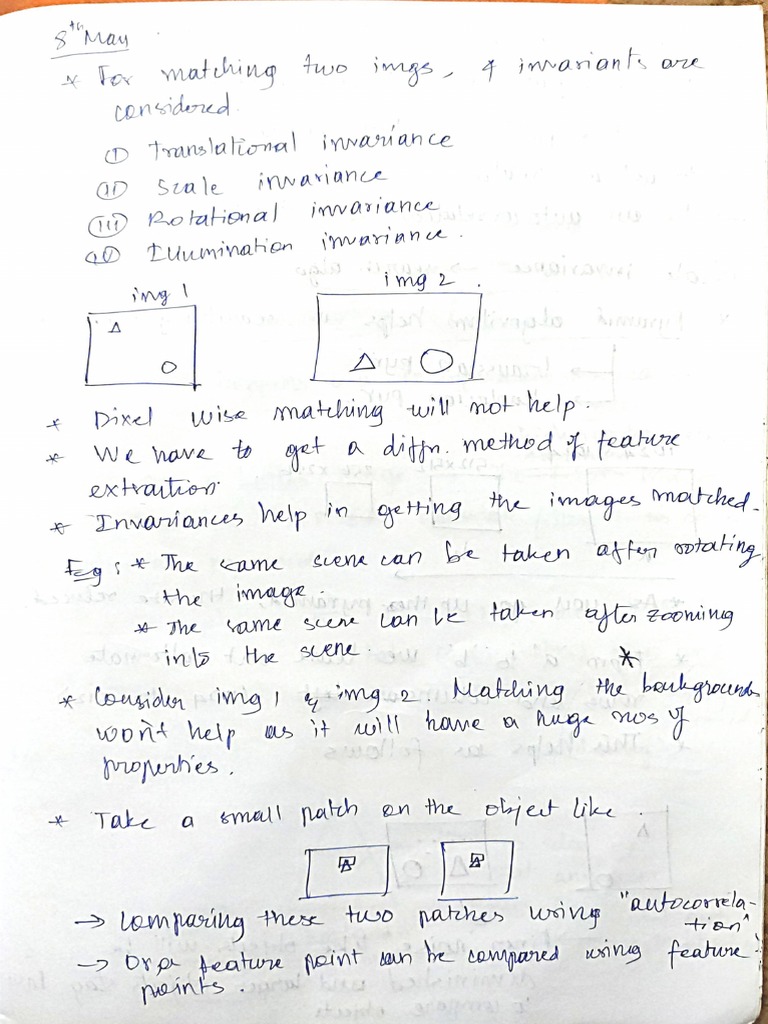 8th May
* For matching two imgs, 4 invariants are
considered.
(I) Translational invariance
(II) Scale invariance
(III) Rotational invariance
(IV) Illumination invariance.
img 1
img 2.
* Pixel wise matching will not help.
* We have to get a diffn. method of feature
extraction.
* Invariances help in getting the images matched.
Eg: * The same scene can be taken after rotating
the image.
* The same scene can be taken after zooming
into the scene. *
* Consider img 1 & img 2. Matching the backgrounds
won't help as it will have a huge nos of
properties.
* Take a small patch on the object like.
→ Comparing these two patches using "autocorrela-
tion"
→ Or a feature point can be compared using feature
points.